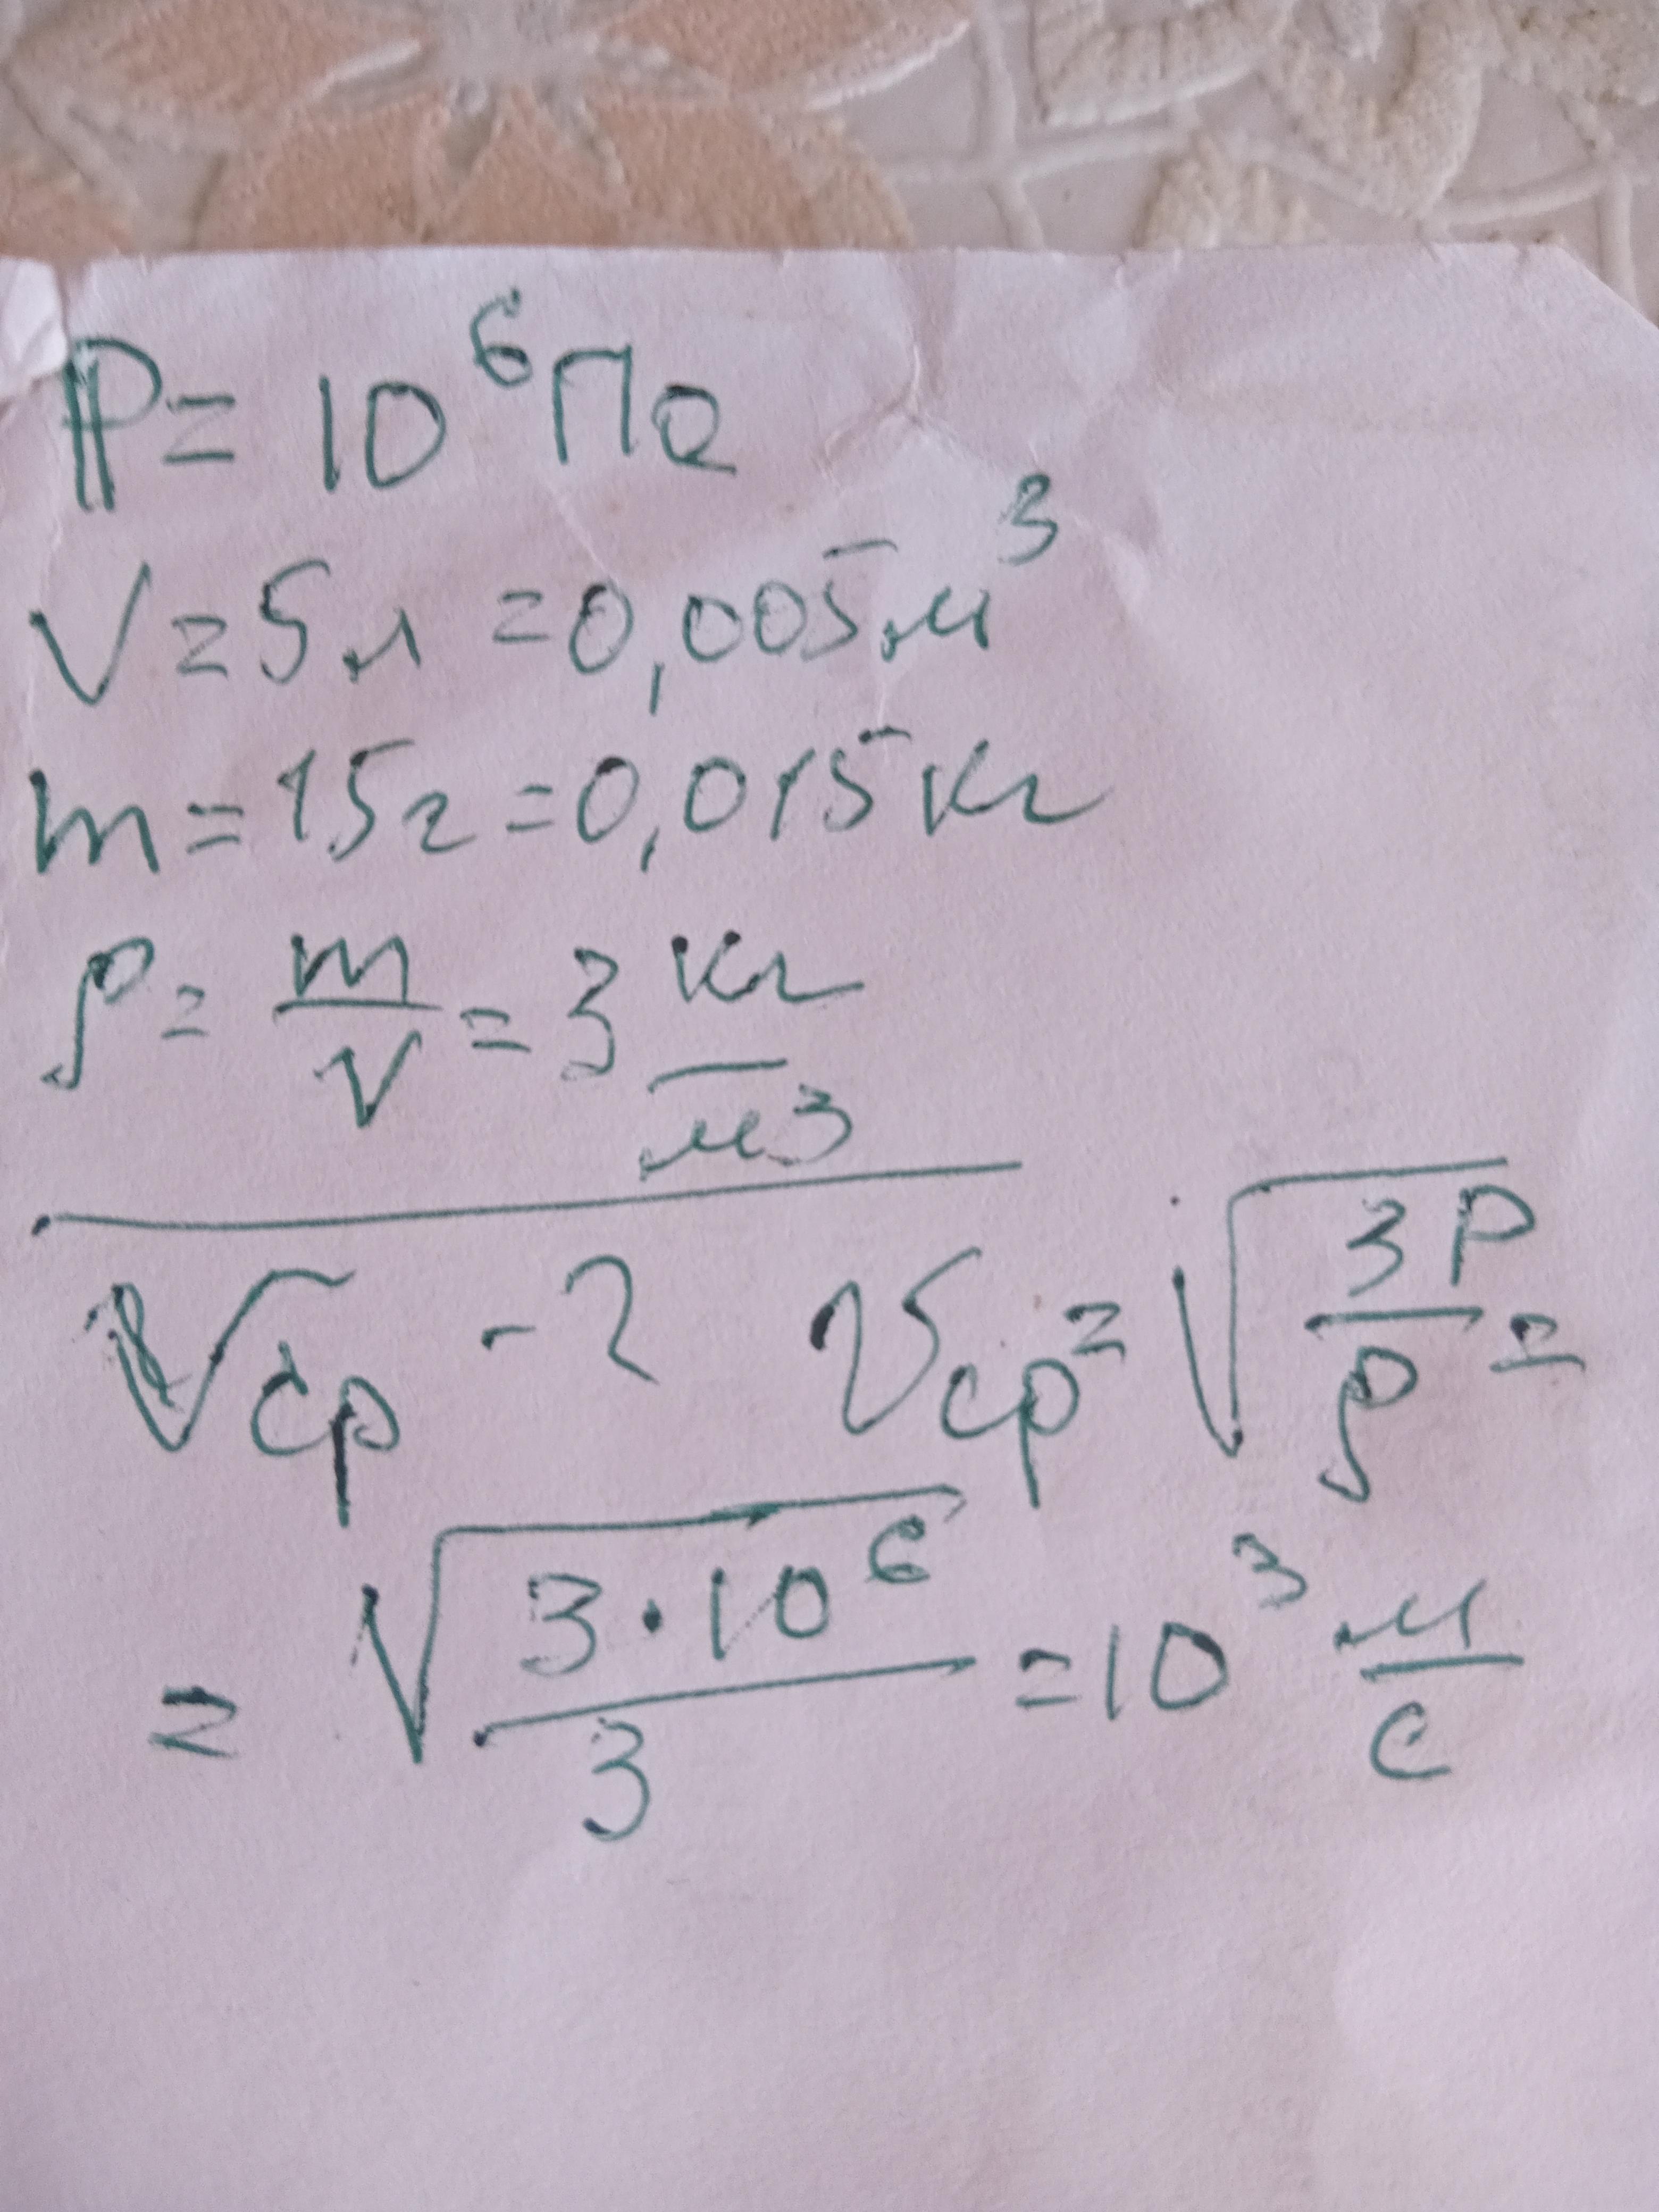 P = 10⁶ Па
V = 5 л = 0,005 м³
m = 15 г = 0,015 кг
ρ = m/V = 3 кг/м³
Vср - ? υср = √(3P/ρ) =
= √(3·10⁶/3) = 10³ м/с